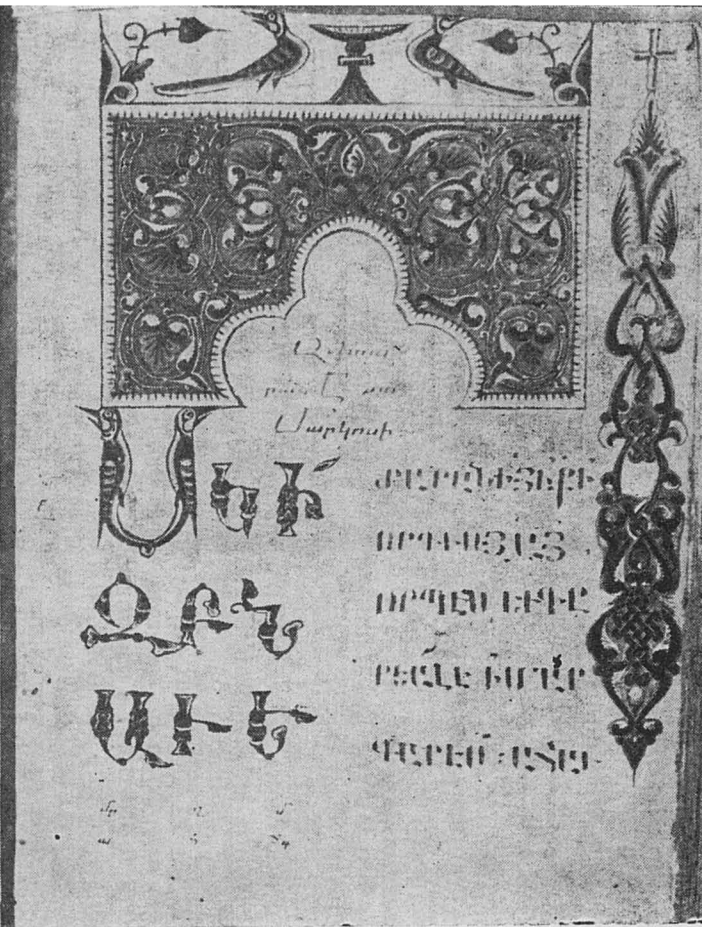 Աւետա
րան ըստ
Մարկոսի
ՍԿԻ
ԶԲՆ
ԱՒԵ
ՏԱՐԱՆԻ ՅՅԻ ՔԻ
ՈՐԴՒՈՅ ԱՅ
ՈՐՊԷՍ ԵՒ ԳԷ
ՐԵԱԼ Է ԻՄԱՐ
ԳԱՐԷՍ ԱՀԱ